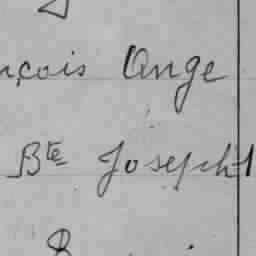 nçois Ange
Bte Joseph